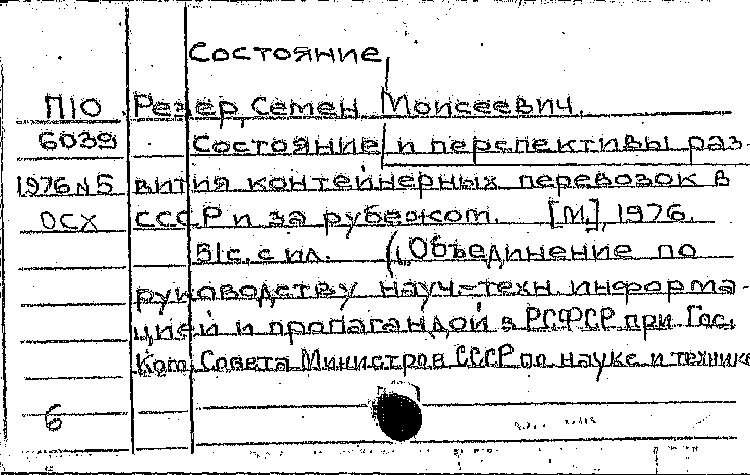 Состояние
П10 Резер, Семен Моисеевич.
6039 Состояние и перспективы раз-
1976 N5 вития контейнерных перевозок в
ОСХ СССР и за рубежом. [М.], 1976.
51с. с ил. („Объединение по
руководству науч-техн. информа-
цией и пропагандой в РСФСР при Гос.
Ком. Совета Министров СССР по науке и технике
6